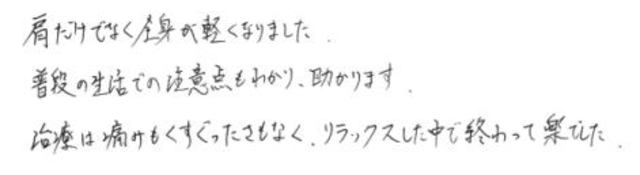 肩だけでなく全身が軽くなりました.
普段の生活での注意点もわかり、助かります.
治療は痛みもくすぐったさもなく、リラックスした中で終わって楽でした.